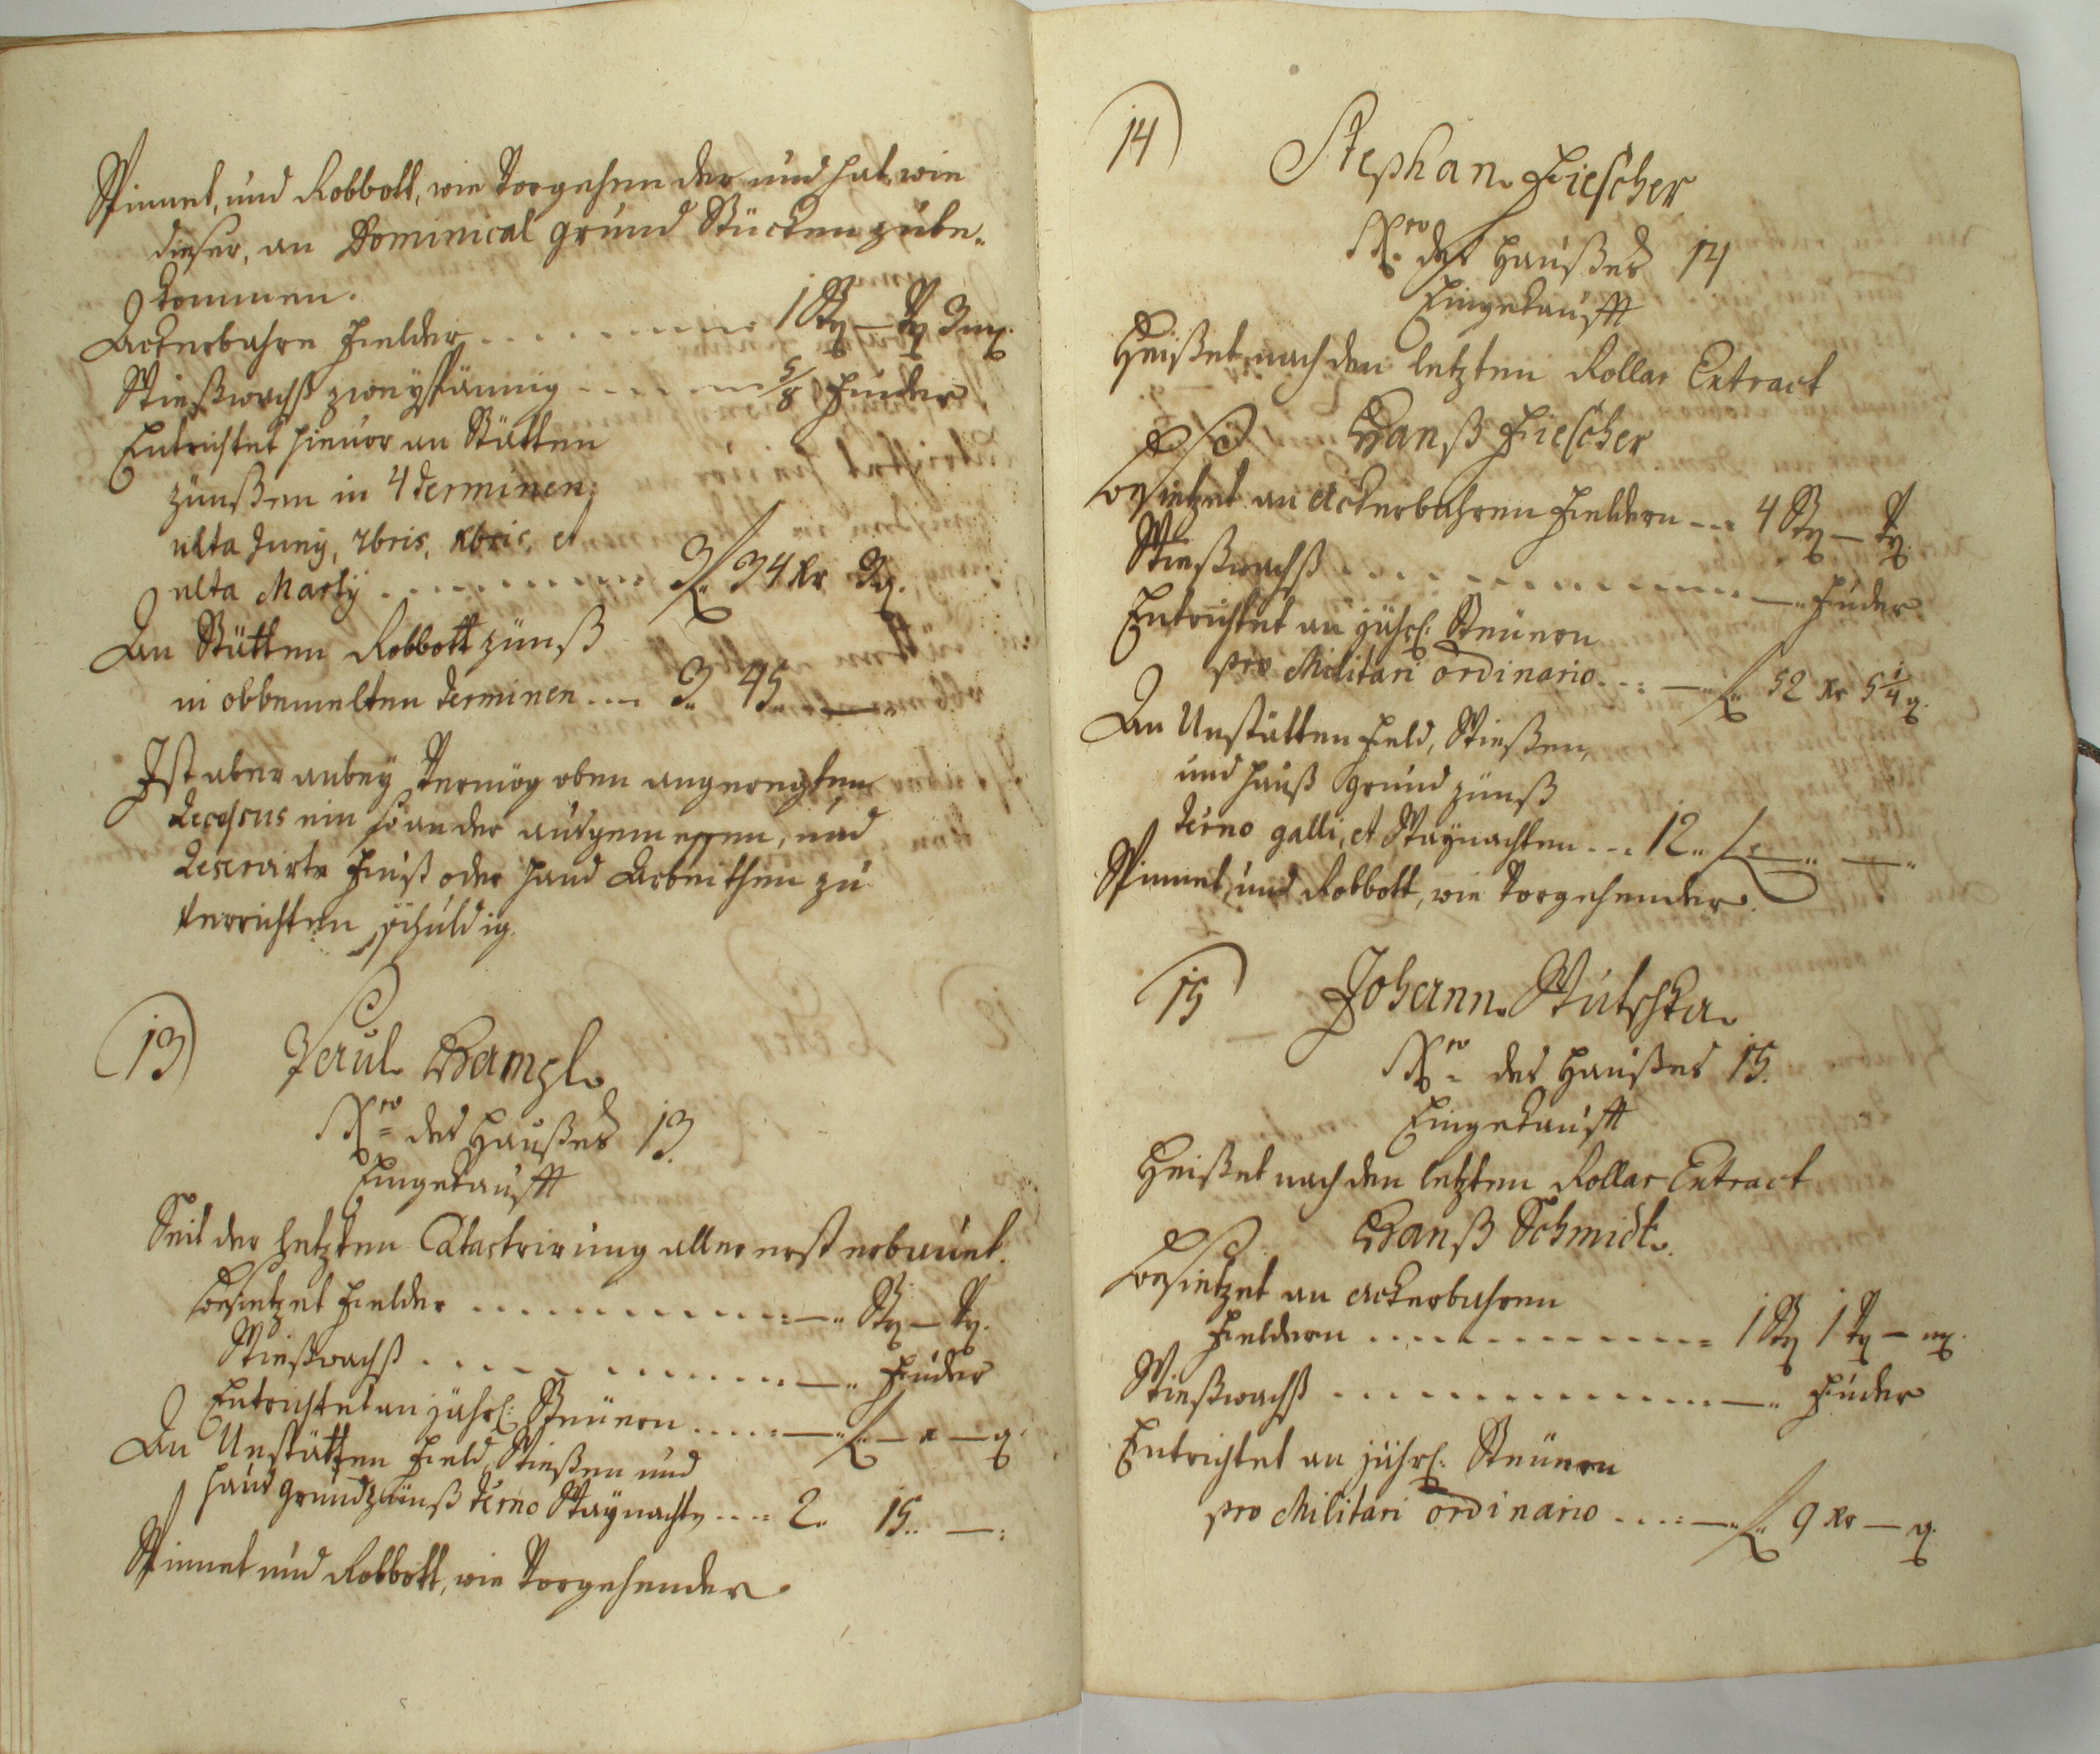 Spinnet, und Robbott, wie Vorgehender und hat wie
dieser, an Dominical grund Stücken zube-
kommen.
Ackerbahre Fielder . . . . . . . 1 Stz — Vtz 3 mx.
Wießwachß zweyspännig . . . . . 5/8 Fuder
Entrichtet hievor an Stätten
zünßen in 4 Terminen,
ulta Juny, 7bris, Xbris, et
ulta Martÿ . . . . . . . . 3 f. 34 Kr 3 q.
An Stätten Robbott zünß
in obbemelten Terminen . . . . 3. 45. —.
Ist aber anbey Vermög oben angeregten
Recessus ein so ander ausgemessen, und
Reservirte Fuß oder Hand Arbeithen zu
Verrichten schuldig.
13) Paul Hampl.
Nro des Haußes 13.
Eingekaufft
Seit der letzten Catastrirung aller erst erbauet.
Besietzet Fielder . . . . . . . . . . — Stz — Vtz.
Wießwachß . . . . . . . . . . . . —. Fuder
Entrichtet an jährl: Steüern . . . . . —. f. — x — q.
An Unstätten Field, Wießen und
Hauß grundzünß Terno Waynachtn . . . . 2. 15. —.
Spinnet und Robbott, wie Vorgehender.
14) Stephan Fiescher
Nro des Haußes 14
Eingekaufft
Heißet nach den letzten Rollar Extract
Hanß Fiescher
Besietzet an Ackerbahren Fieldern . . . 4 Stz — Vtz.
Wießwachß . . . . . . . . . . . . . —. Fuder
Entrichtet an jährl: Steüern
pro Militari ordinario . . . —. f. 52 Kr 5 1/4 q.
An Unstätten Field, Wießen,
und Hauß grund zünß
Terno galli, et Waynachten . . . 12. f. —. —.
Spinnet, und Robbott, wie Vorgehender.
15) Johann Wutschka.
Nro des Haußes 15.
Eingekaufft
Heißet nach den letzten Rollar Extract
Hanß Schmidt.
Besietzet an Ackerbahren
Fieldern . . . . . . . . . . . . 1 Stz 1 Vtz — mx.
Wießwachß . . . . . . . . . . . . . —. Fuder
Entrichtet an jährl: Steüern
pro Militari ordinario . . . . —. f. 9 Kr — q.